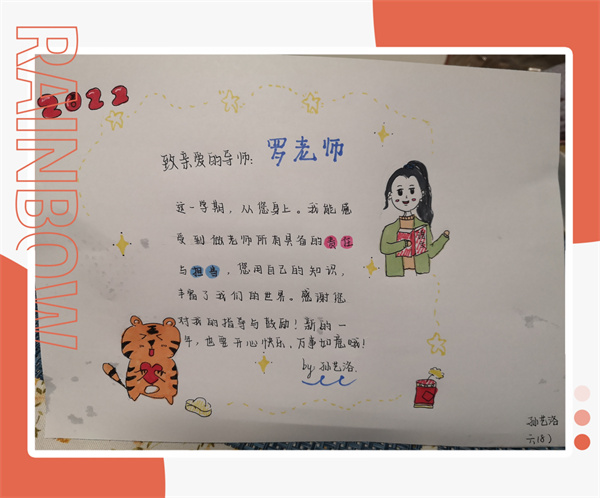 RAINBOW
2022
致亲爱的导师：罗老师
这一学期，从您身上。我能感
受到做老师所有具备的责任
与担当，您用自己的知识，
丰富了我们的世界。感谢您
对我的指导与鼓励！新的一
年，也要开心快乐，万事如意哦！
by 孙艺洛
孙艺洛
六(8)